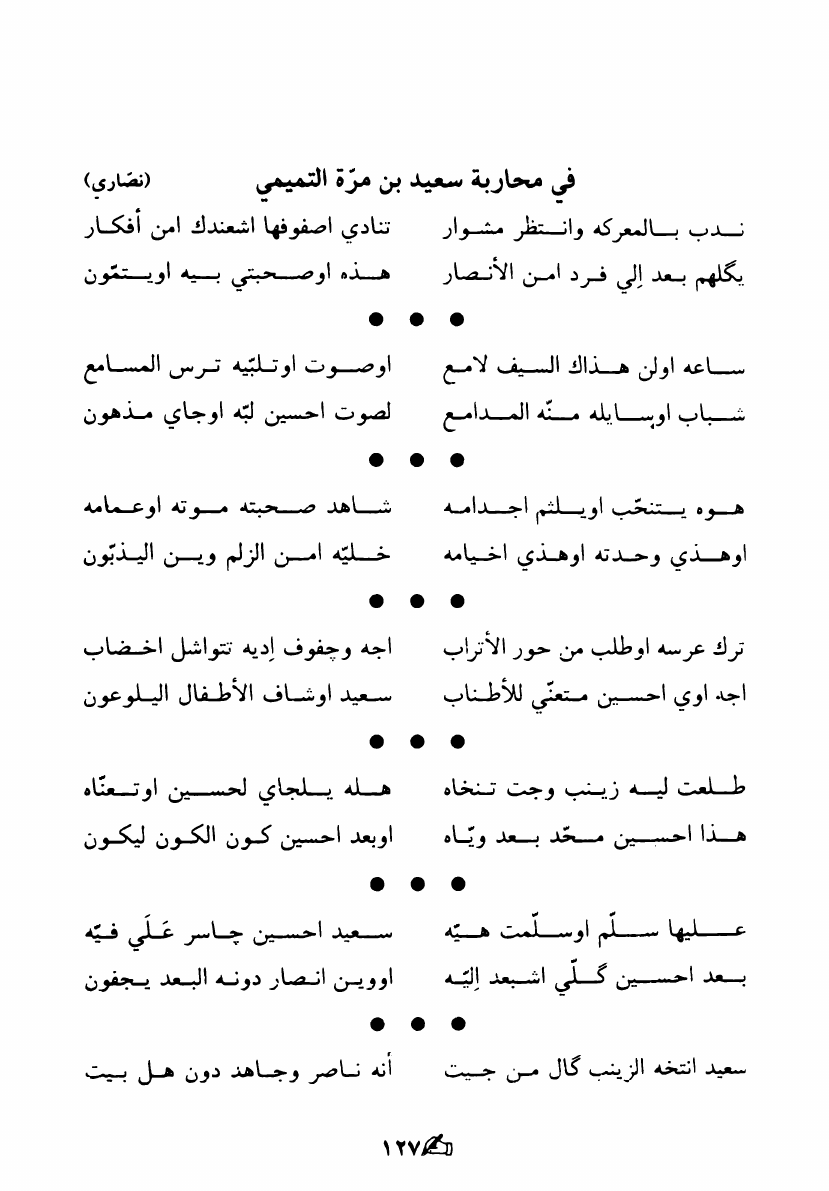 في محاربة سعيد بن مرّة التميمي (نصّاري)
ندب بالمعركه وانتظر مشوار تنادي اصفوفها اشعندك امن أفكار
يگلهم بعد إلي فرد امن الأنصار هذه اوصحبتي بيه اويتمّون
● ● ●
ساعه اولن هذاك السيف لامع اوصوت اوتلبّيه ترس المسامع
شباب اوسايله منّه المدامع لصوت احسين لبّه اوجاي مذهون
● ● ●
هوه يتنحّب اويلثم اجدامه شاهد صحبته موته اوعمامه
اوهذي وحدته اوهذي اخيامه خليّه امن الزلم وين اليذبّون
● ● ●
ترك عرسه اوطلب من حور الأتراب اجه وچفوف إديه تتواشل اخضاب
اجه اوي احسين متعنّي للأطناب سعيد اوشاف الأطفال اليلوعون
● ● ●
طلعت ليه زينب وجت تنخاه هله يلجاي لحسين اوتعنّاه
هذا احسين محّد بعد ويّاه اوبعد احسين كون الكون ليكون
● ● ●
عليها سلّم اوسلّمت هيّه سعيد احسين چاسر عَلَي فيّه
بعد احسين گلّي اشبعد اليّه اووين انصار دونه البعد يجفون
● ● ●
سعيد انتخه الزينب گال من جيت أنه ناصر وجاهد دون هل بيت
١٢٧